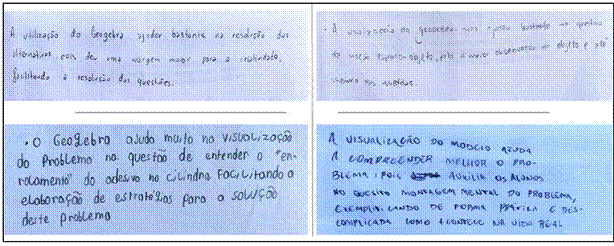 A utilização do Geogebra ajudou bastante na resolução das
alternativas, pois deu uma margem maior para a criatividade,
facilitando a resolução das questões.
A utilização do geogebra nos ajudou bastante no quesito
da noção espaço-objeto, pela a maior observação do objeto e pela
nas medidas.
• O GeoGebra ajuda muito na visualização
do Problema na questão de entender o "en-
rolamento" do adesivo no cilindro facilitando a
elaboração de estratégias para a solução
deste problema
A VISUALIZAÇÃO DO MODELO AJUDA
A COMPREENDER MELHOR O PRO-
BLEMA, POIS AUXILIA OS ALUNOS
NO QUESITO MONTAGEM MENTAL DO PROBLEMA,
EXEMPLIFICANDO DE FORMA PRÁTICA E DES-
COMPLICADA COMO ACONTECE NA VIDA REAL